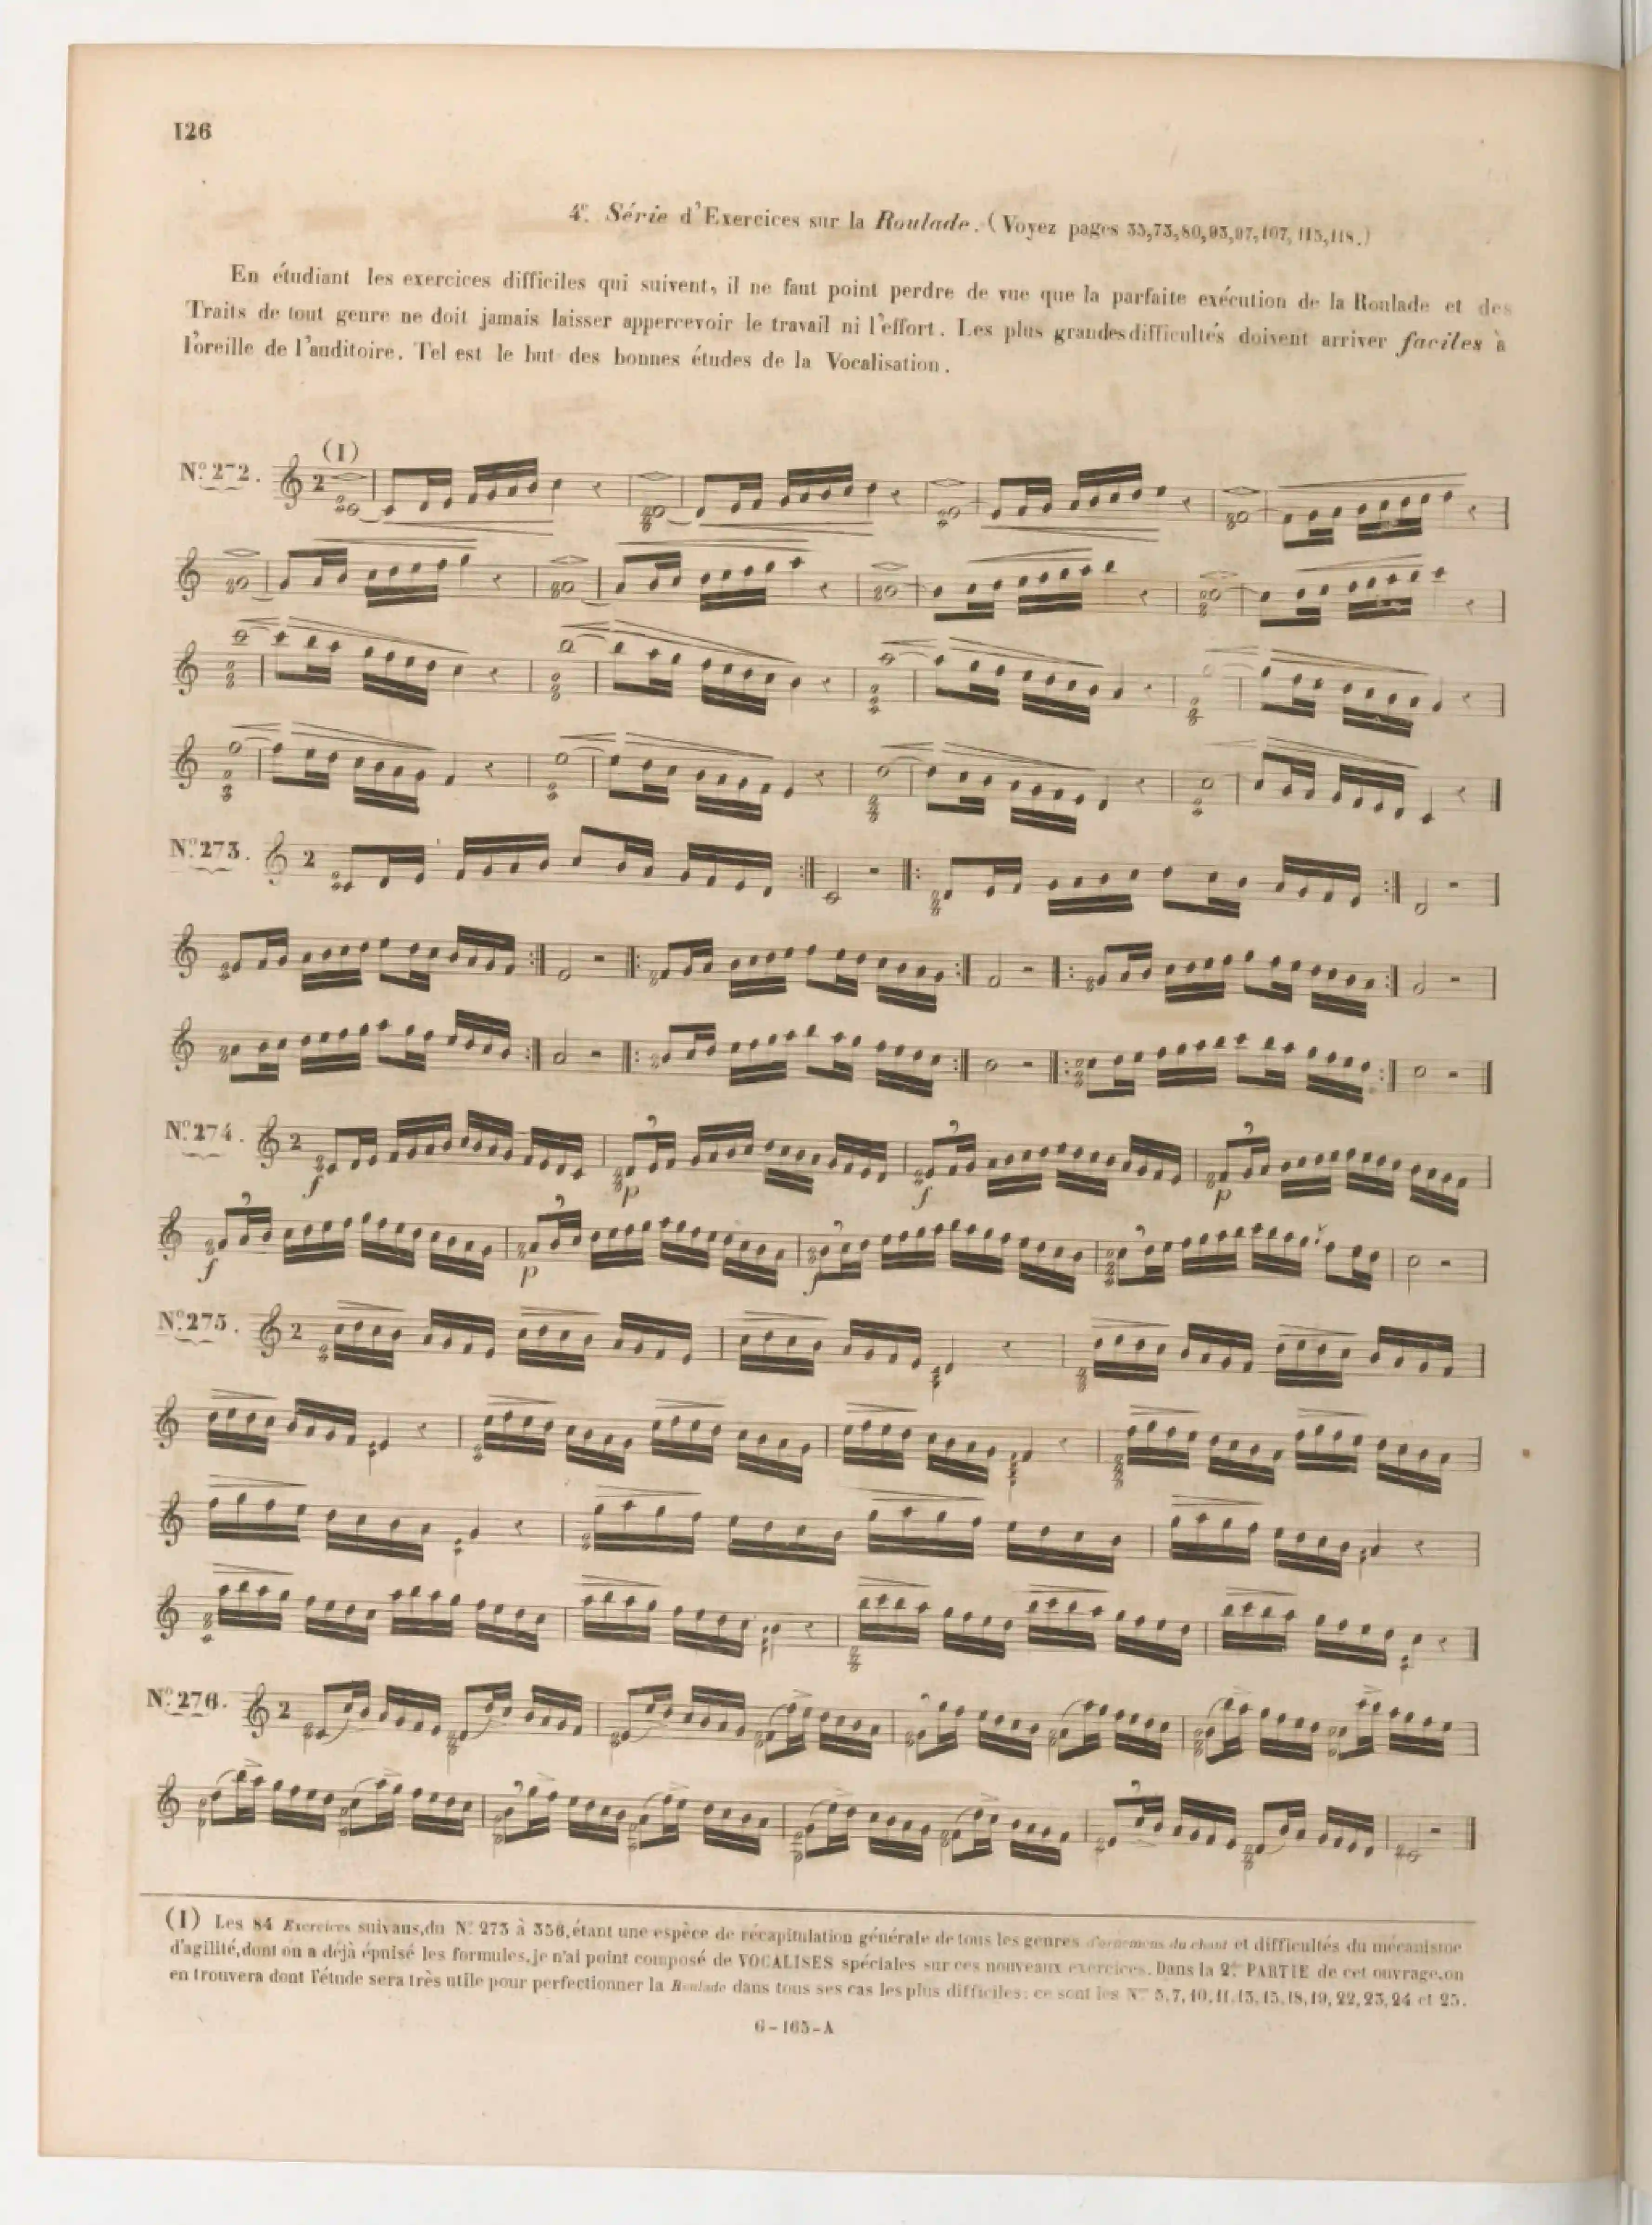 126
4e. Série d'Exercices sur la Roulade. (Voyez pages 35,73,80,93,97,107,115,118.)
En étudiant les exercices difficiles qui suivent, il ne faut point perdre de vue que la parfaite exécution de la Roulade et des
Traits de tout genre ne doit jamais laisser appercevoir le travail ni l'effort. Les plus grandes difficultés doivent arriver faciles à
l'oreille de l'auditoire. Tel est le but des bonnes études de la Vocalisation.
(I)
No. 272.
2
No. 273.
2
No. 274.
2
f p f p
f p f
No. 275.
2
No. 276.
2
(I) Les 84 Exercices suivans, du No. 273 à 356, étant une espèce de récapitulation générale de tous les genres d'ornemens du chant et difficultés du mécanisme
d'agilité, dont on a déjà épuisé les formules, je n'ai point composé de VOCALISES spéciales sur ces nouveaux exercices. Dans la 2e. PARTIE de cet ouvrage, on
en trouvera dont l'étude sera très utile pour perfectionner la Roulade dans tous ses cas les plus difficiles: ce sont les Nos 5,7,10,11,13,15,18,19,22,23,24 et 25.
G-165-A